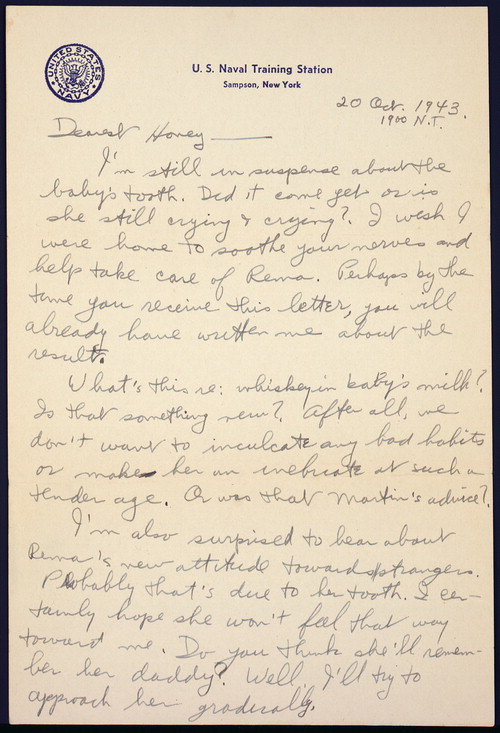 UNITED STATES NAVY
U. S. Naval Training Station
Sampson, New York
20 Oct. 1943.
1900 N.T.
Dearest Honey —
I'm still in suspense about the
baby's tooth. Did it come yet or is
she still crying & crying? I wish I
were home to soothe your nerves and
help take care of Rema. Perhaps by the
time you receive this letter, you will
already have written me about the
result.
What's this re: whiskey in baby's milk?
Is that something new? After all, we
don't want to inculcate any bad habits
or make her an inebriate at such a
tender age. Or was that Martin's advice?
I'm also surprised to hear about
Rema's new attitude towards strangers.
Probably that's due to her tooth. I cer-
tainly hope she won't feel that way
toward me. Do you think she'll remem-
ber her daddy? Well, I'll try to
approach her gradually.